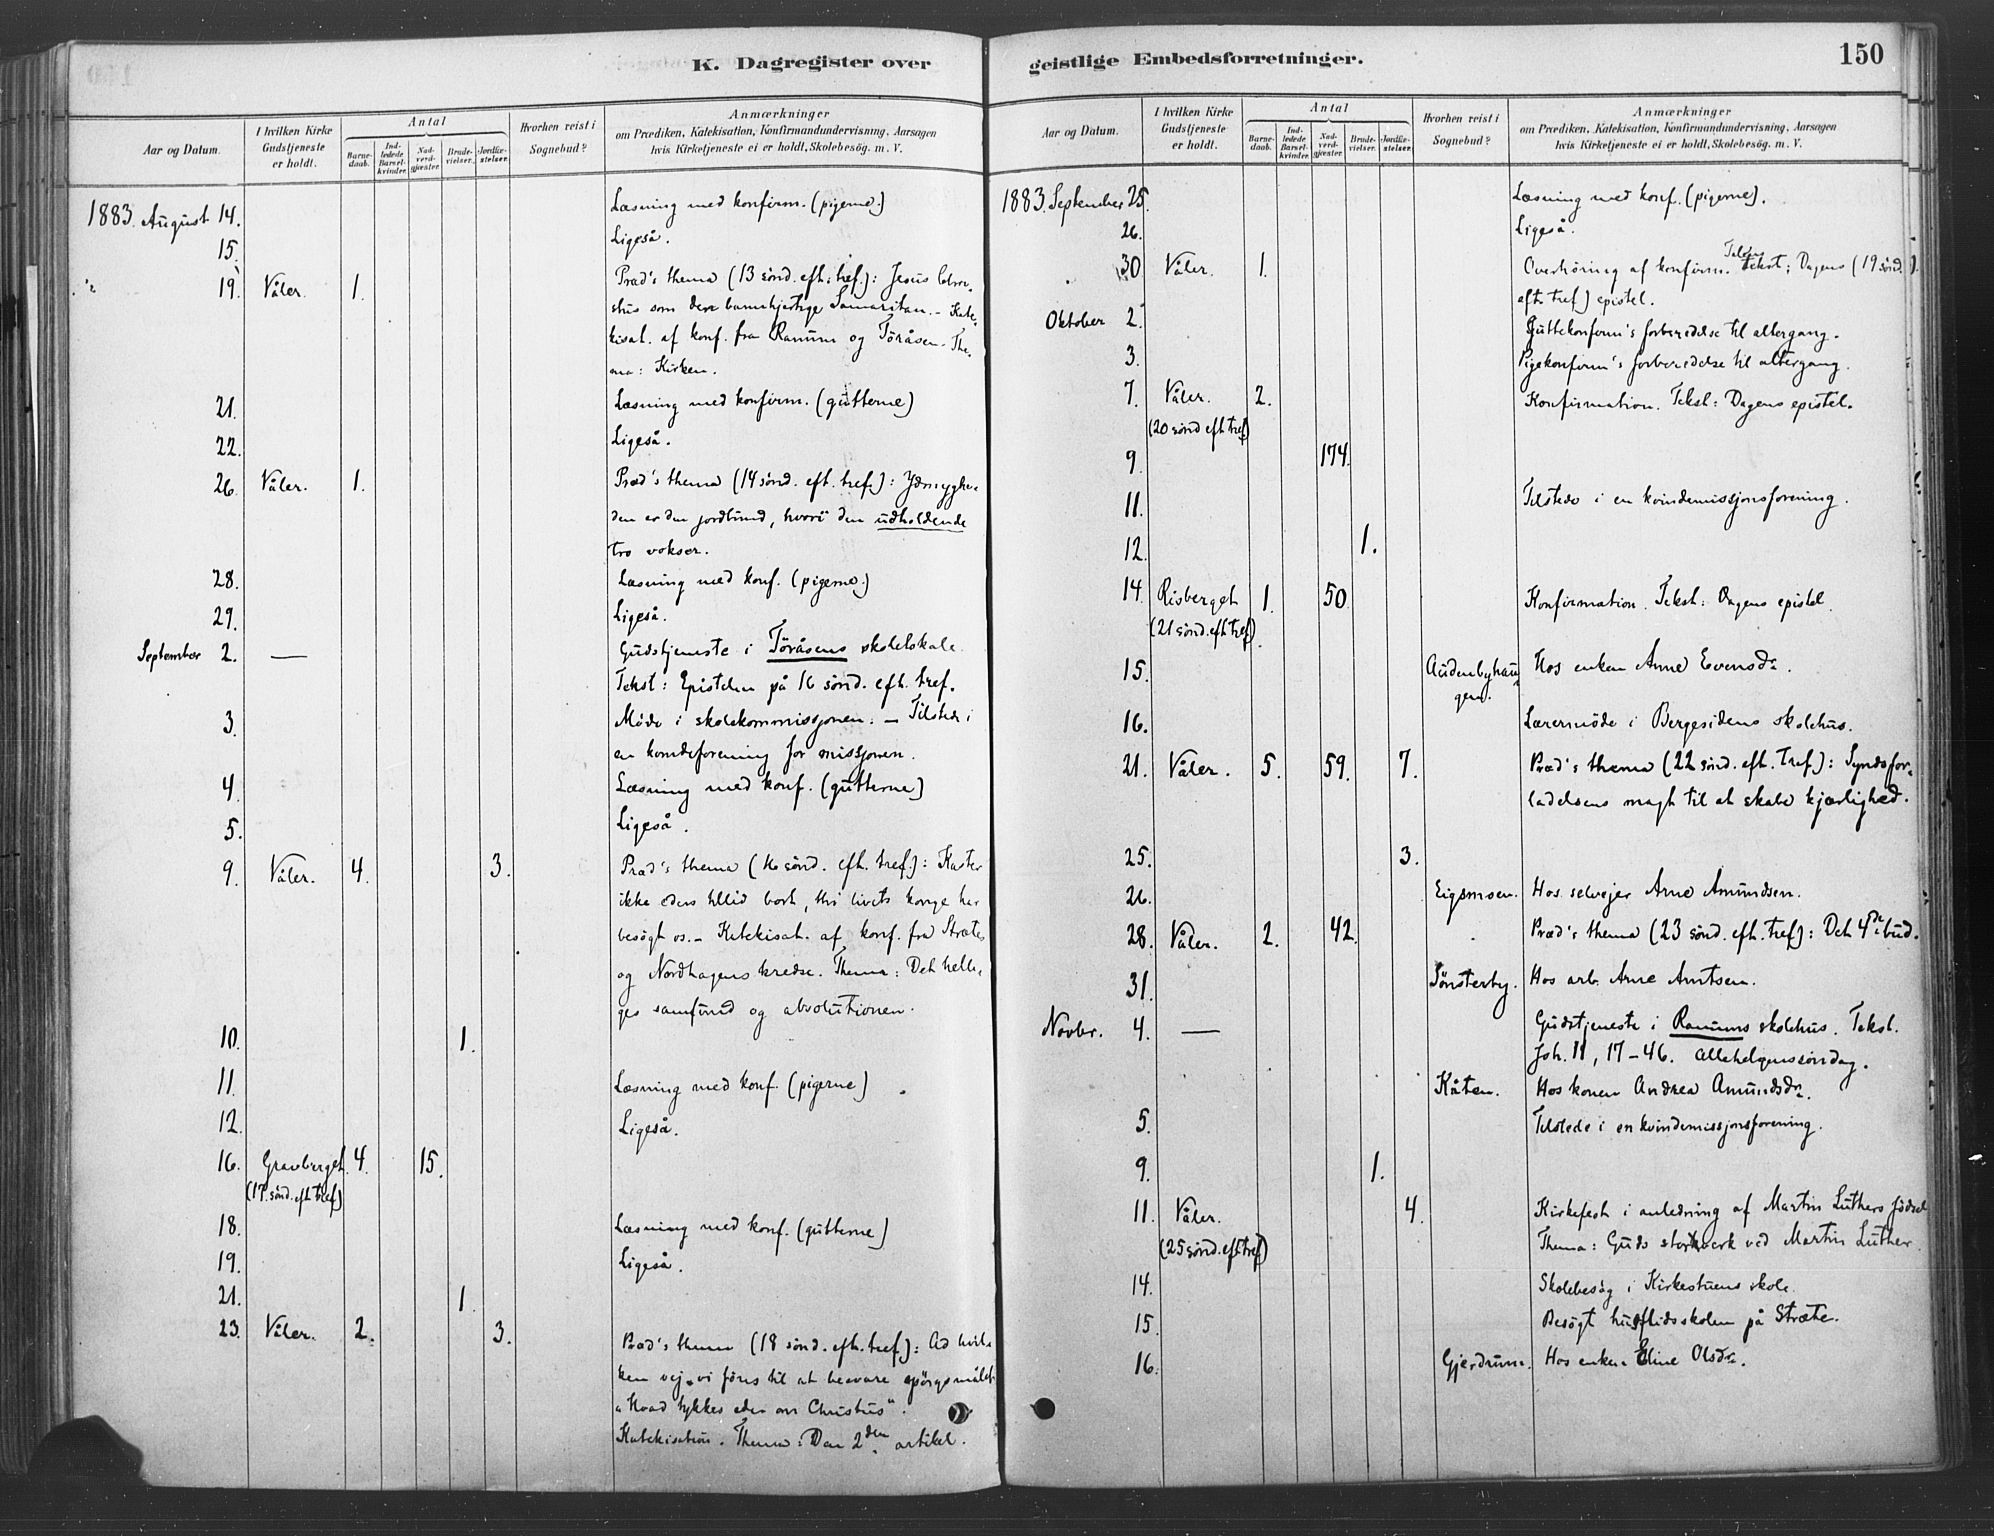 K. Dagregister over
Aar og Datum.
I hvilken Kirke Gudstjeneste er holdt.
Antal
Barnedaab.
Indledede Barselkvinder.
Nadverdgjæster.
Brudevielser.
Jordfæstelser.
Hvorhen reist i Sognebud?
Anmærkninger
om Prædiken, Katekisation, Konfirmandundervisning, Aarsagen
hvis Kirketjeneste ei er holdt, Skolebesøg. m. V.
1883. August 14. Læsning med konfirm. (pigerne.)
15. Ligeså.
19. Våler. 1. Præd's thema (13 sönd. eft. tref.): Jesus Chri-
stus som den barmhjertige Samaritan. – Kate-
kisat. af konf. fra Ranum og Töråsen. The-
ma: Kirken.
21. Læsning med konfirm. (gutterne)
22. Ligeså.
26. Våler. 1. Præd's thema (14 sönd. eft. tref.): Ydmyghe-
den er den jordbund, hvori den udholdende
tro vokser.
28. Læsning med konf. (pigerne.)
29. Ligeså.
September 2. — Gudstjeneste i Töråsens skolelokale.
Tekst: Epistelen på 16 sönd. eft. tref.
3. Möde i skolekommissjonen. – Tilstede i
en kvindeforening for missjonen.
4. Læsning med konf. (gutterne)
5. Ligeså.
9. Våler. 4. 3. Præd's thema (16 sönd. eft. tref.): Kaster
ikke eders tillid bort, thi livets konge har
besögt os. – Katekisat. af konf. fra Stræte
og Nordhagens kredse. Thema: Det helli-
ges samfund og absolutionen.
10. 1.
11. Læsning med konf. (pigerne)
12. Ligeså.
16. Gravberget. 4. 15.
(17. sönd. eft tref)
18. Læsning med konf. (gutterne)
19. Ligeså.
21. 1.
23. Våler. 2. 3. Præd's thema (18 sönd. eft. tref.): Ad hvil-
ken vej vi föres til at besvare spörgsmålet
"Hvad tykkes eder om Christus".
Katekisation. Thema: Den 2den artikel.
geistlige Embedsforretninger.
150
Aar og Datum.
I hvilken Kirke Gudstjeneste er holdt.
Antal
Barnedaab.
Indledede Barselkvinder.
Nadverdgjæster.
Brudevielser.
Jordfæstelser.
Hvorhen reist i Sognebud?
Anmærkninger
om Prædiken, Katekisation, Konfirmandundervisning, Aarsagen
hvis Kirketjeneste ei er holdt, Skolebesøg. m. V.
1883. September 25. Læsning med konf. (pigerne).
26. Ligeså.
30 Våler. 1. Overhöring af konfirm. Tekst: Dagens (19 sönd.
eft tref) epistel.
Oktober 2. Guttekonform's forberedelse til altergang.
3. Pigekonform's forberedelse til altergang.
7. Våler. 2. Konfirmation. Tekst: Dagens epistel.
(20 sönd eft tref)
9. 174.
11. Tilstede i en kvindemissjonsforening.
12. 1.
14. Risberget 1. 50. Konfirmation. Tekst: Dagens epistel.
(21 sönd. eft tref)
15. Audenbyhau-
gen. Hos enken Anne Evensdr.
16. Lærermöde i Bergesidens skolehus.
21. Våler. 5. 59. 7. Præd's thema (22 sönd. eft. tref.): Syndsfor-
ladelsens magt til at skabe kjærlighed.
25. 3.
26. Eigsmoen. Hos selvejer Arne Amundsen.
28. Våler. 2. 42. Præd's thema (23 sönd. eft. tref): Det 4de bud.
31. Sönsterby. Hos arb. Arne Arntsen.
Novbr. 4. — Gudstjeneste i Ranums skolehus. Tekst.
Joh. 11, 17–46. Allehelgenssöndag.
Kåten. Hos konen Andrea Amundsdr.
5. Tilstede i en kvindemissjonsforening.
9. 1.
11. Våler. 4. Kirkefest i anledning af Martin Luthers födsel
(25 sönd. eft tref) Thema: Guds storverk ved Martin Luther.
14. Skolebesög i Kirkestuens skole.
15. Besögt husflidsskolen på Stræte.
16. Gjerdrum. Hos enken Eline Olsdr.